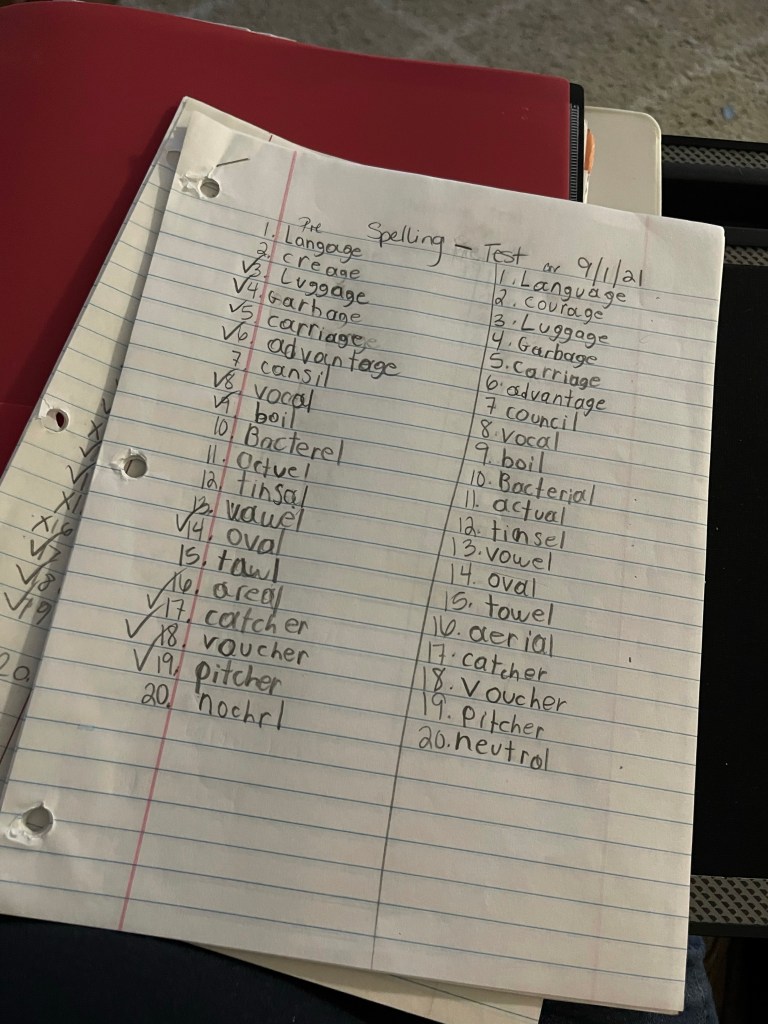 Pre Spelling - Test on 9/1/21
1. Langage
2. creage
✓3. Luggage
✓4. Garbage
✓5 carriage
✓6. advantage
7 cansil
✓8. vocal
✓9. boil
10. Bacterel
11. actuel
12. tinsal
13. vawel
✓14. oval
15. tawl
16. areal
✓17. catcher
✓18. voucher
✓19. pitcher
20. nochrl
1. Language
2. courage
3. Luggage
4. Garbage
5. carriage
6. advantage
7 council
8. vocal
9. boil
10. Bacterial
11. actual
12. tinsel
13. vowel
14. oval
15. towel
16. aerial
17. catcher
18. Voucher
19. Pitcher
20. neutral
✓
X
✓
✓
X1
X16
✓17
✓18
✓19
20.